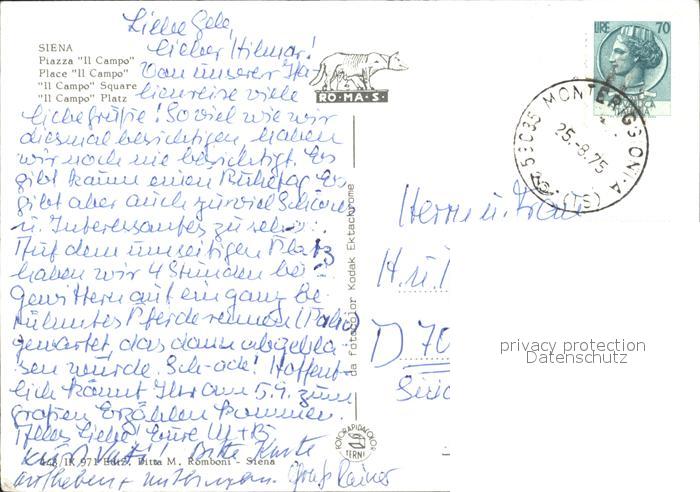 SIENA
Piazza "Il Campo"
Place "Il Campo"
"Il Campo" Square
"Il Campo" Platz
Liebe Gele,
lieber Hilmar!
Von unserer Ita
lienreise viele
liebe Grüße! Soviel wie wir
diesmal besichtigen haben
wir noch nie besichtigt. Es
gibt kaum einen Ruhetag. Es
gibt aber auch zuviel Schönes
u. Interessantes zu sehen.
Auf dem umseitigen Platz
haben wir 4 Stunden bei
Gewittern auf ein ganz be-
rühmtes Pferderennen (Palio)
gewartet, das dann abgebla-
sen wurde. Schade! Hoffent-
lich könnt Ihr am 5.9. zum
großen Erzählen kommen.
Alles Liebe! Eure U+B
Bitte Karte
aufheben + mitbringen. Gruß Rainer
448/IK 971 Ediz. Ditta M. Romboni - Siena
RO·MA·S·
da fotocolor Kodak Ektachrome
FOTORAPIDACOLOR
TERNI
LIRE 70
53035 MONTERIGGIONI-A
25.-8.75
Herrn u. Frau
H. u.
D 70
privacy protection
Datenschutz